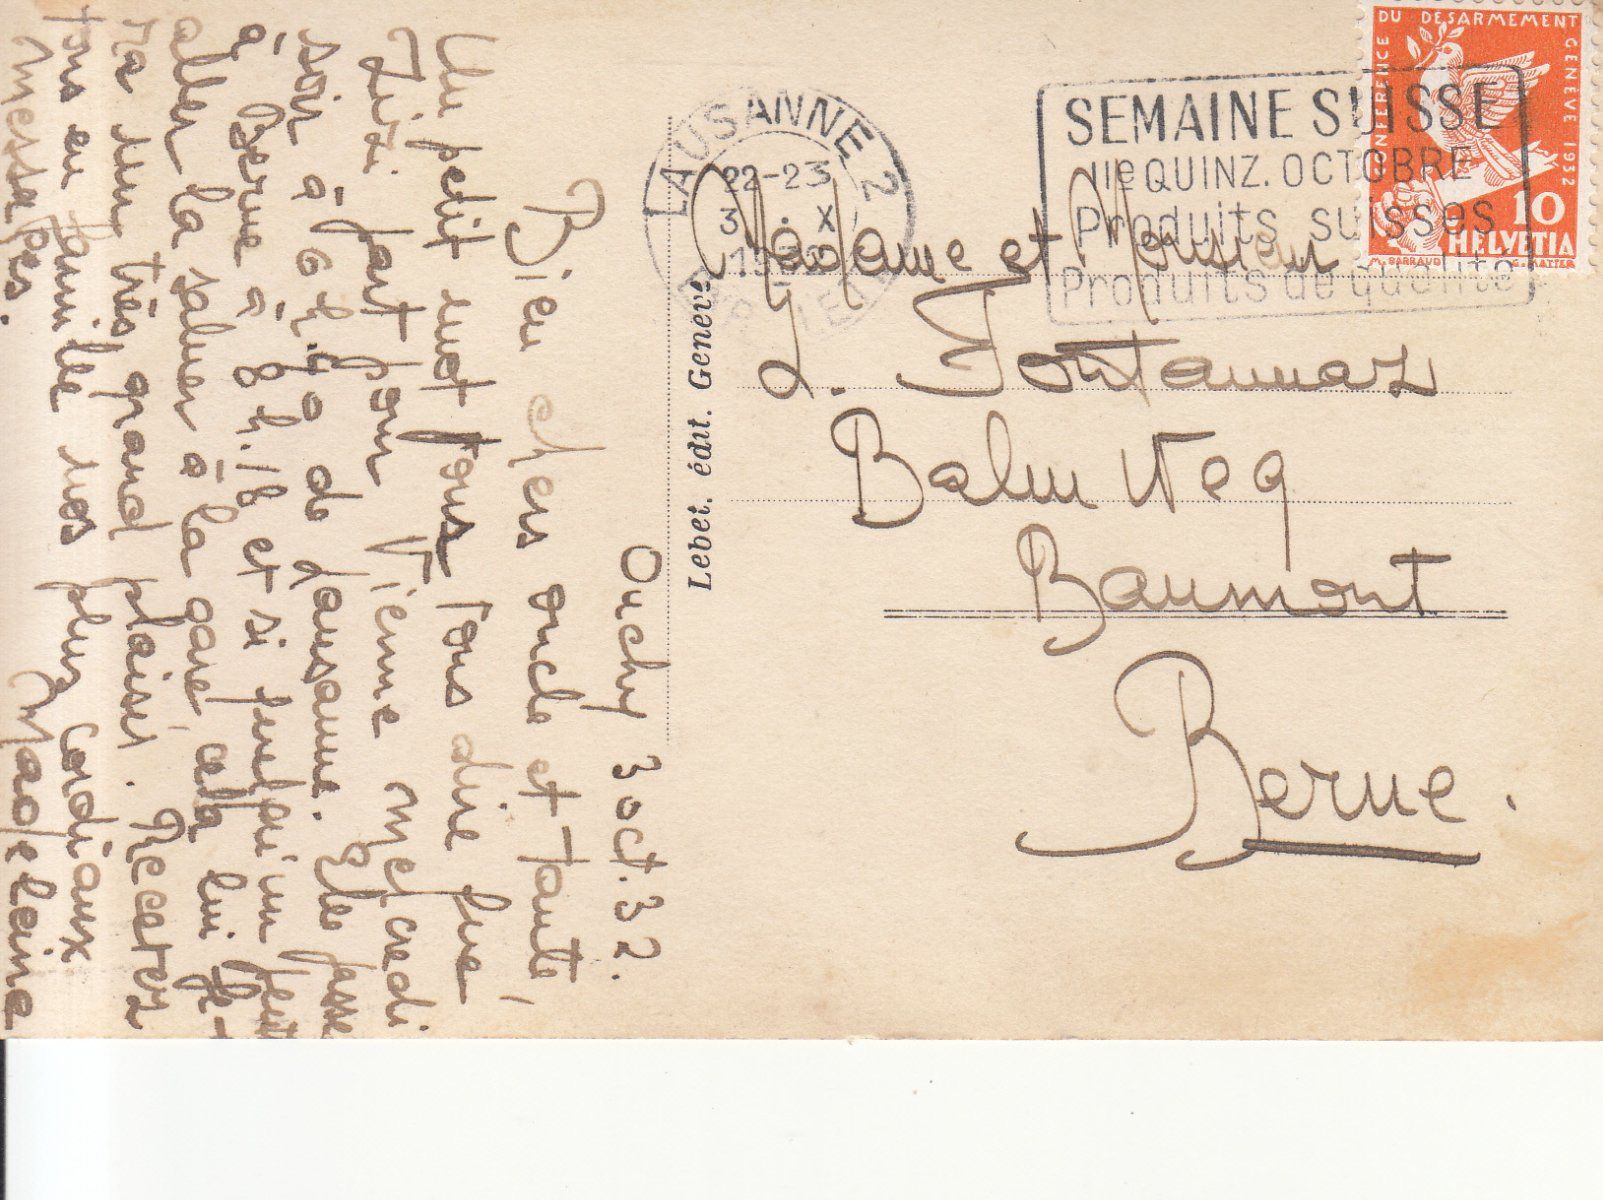 Ouchy 3 oct. 32.
Bien chers oncle et tante,
Un petit mot pour vous dire que
Zizi part pour Vienne mercredi
soir à 6 h. 40 de Lausanne. Elle passe
à Berne à 8 h. 18 et si quelqu'un peut
aller la saluer à la gare, cela lui fe-
ra un très grand plaisir. Recevez
tous en famille nos plus cordiaux
messages.
Madeleine
Lebet. édit. Genève
LAUSANNE 2
22-23
3 . X
SEMAINE SUISSE
IIe QUINZ. OCTOBRE
Produits suisses
Produits de qualité
CONFERENCE DU DESARMEMENT GENEVE 1932
10
HELVETIA
M. BARRAUD
G. MATTER
Madame et Monsieur
L. Fontannaz
Balmweg
Baumont
Berne.